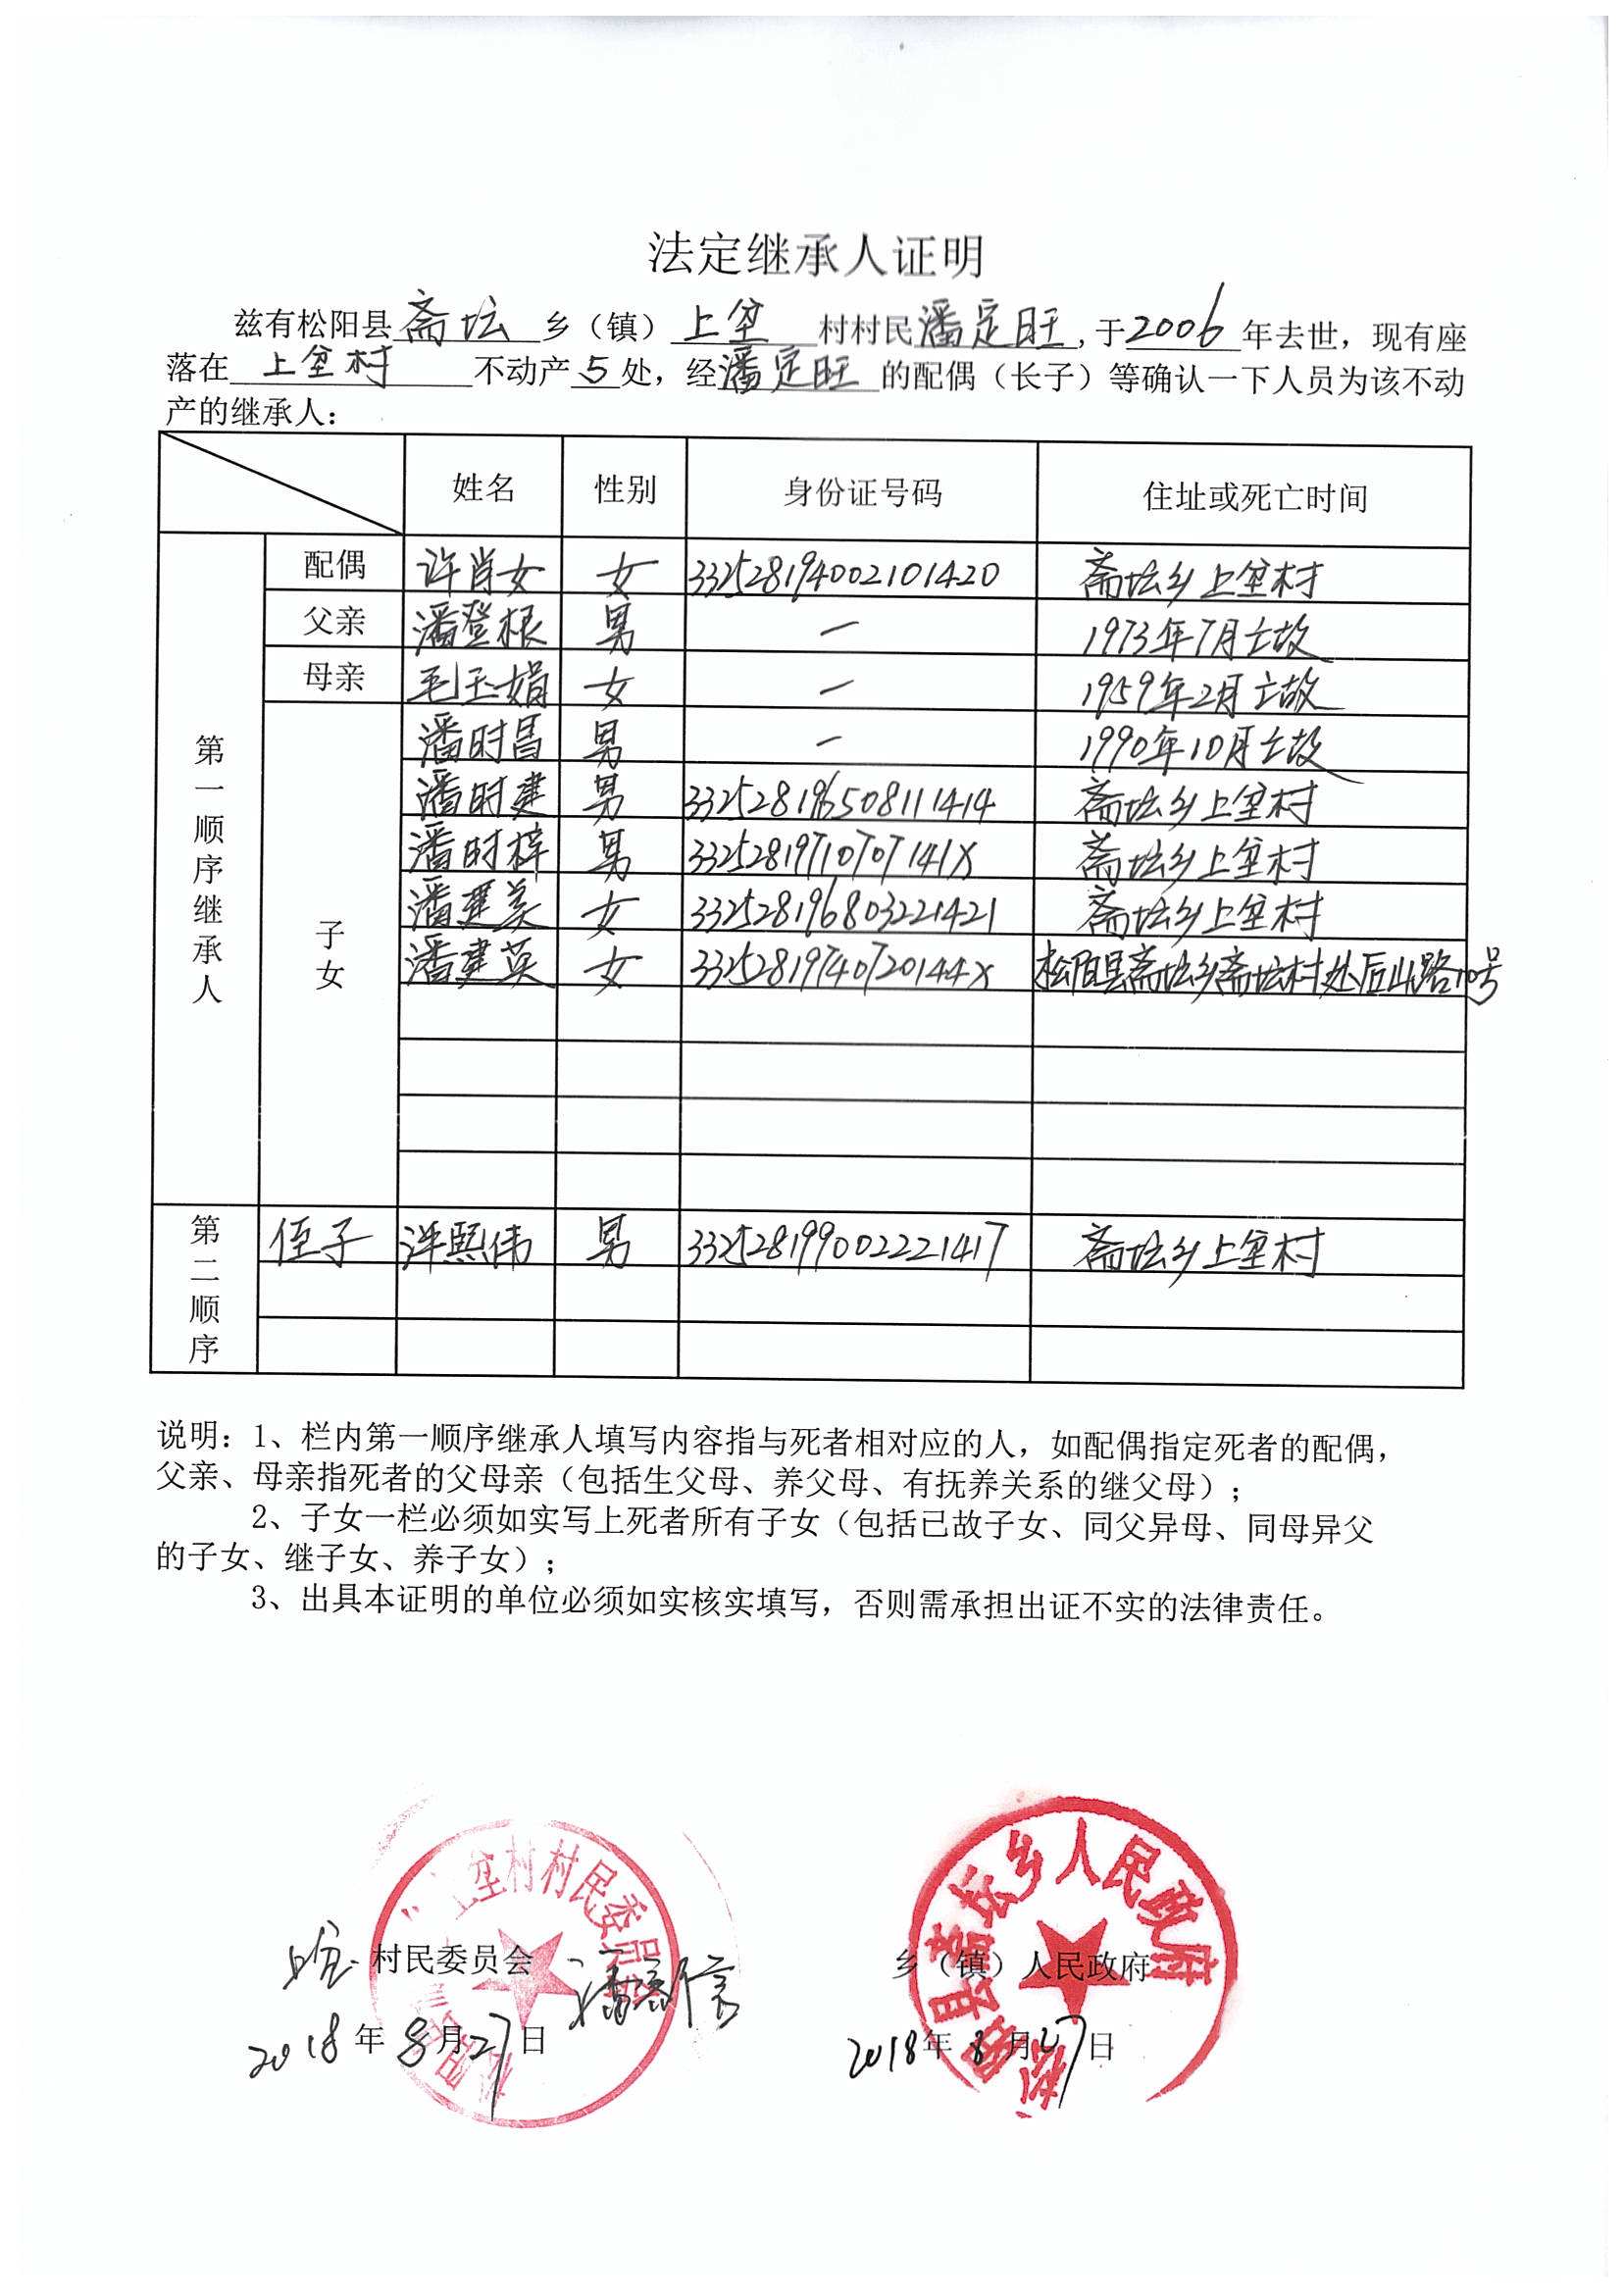 法定继承人证明
兹有松阳县斋坛乡（镇）上垄村村民潘定旺,于2006年去世，现有座
落在上垄村不动产5处，经潘定旺的配偶（长子）等确认一下人员为该不动
产的继承人：
姓名 性别 身份证号码 住址或死亡时间
第一顺序继承人
配偶 许肖女 女 332528194002101420 斋坛乡上垄村
父亲 潘登根 男 — 1973年7月亡故
母亲 毛玉娟 女 — 1959年2月亡故
子女
潘时昌 男 — 1990年10月亡故
潘时建 男 332528196508111414 斋坛乡上垄村
潘时梓 男 33252819710707141X 斋坛乡上垄村
潘建美 女 332528196803221421 斋坛乡上垄村
潘建英 女 33252819740720144X 松阳县斋坛乡斋坛村处后山路10号
第二顺序
侄子 洋熙伟 男 332528199002221417 斋坛乡上垄村
说明：1、栏内第一顺序继承人填写内容指与死者相对应的人，如配偶指定死者的配偶，
父亲、母亲指死者的父母亲（包括生父母、养父母、有抚养关系的继父母）；
2、子女一栏必须如实写上死者所有子女（包括已故子女、同父异母、同母异父
的子女、继子女、养子女）；
3、出具本证明的单位必须如实核实填写，否则需承担出证不实的法律责任。
上垄村村民委员会
松阳县斋坛乡人民政府
上垄 村民委员会
乡（镇）人民政府
2018年8月27日
2018年8月27日